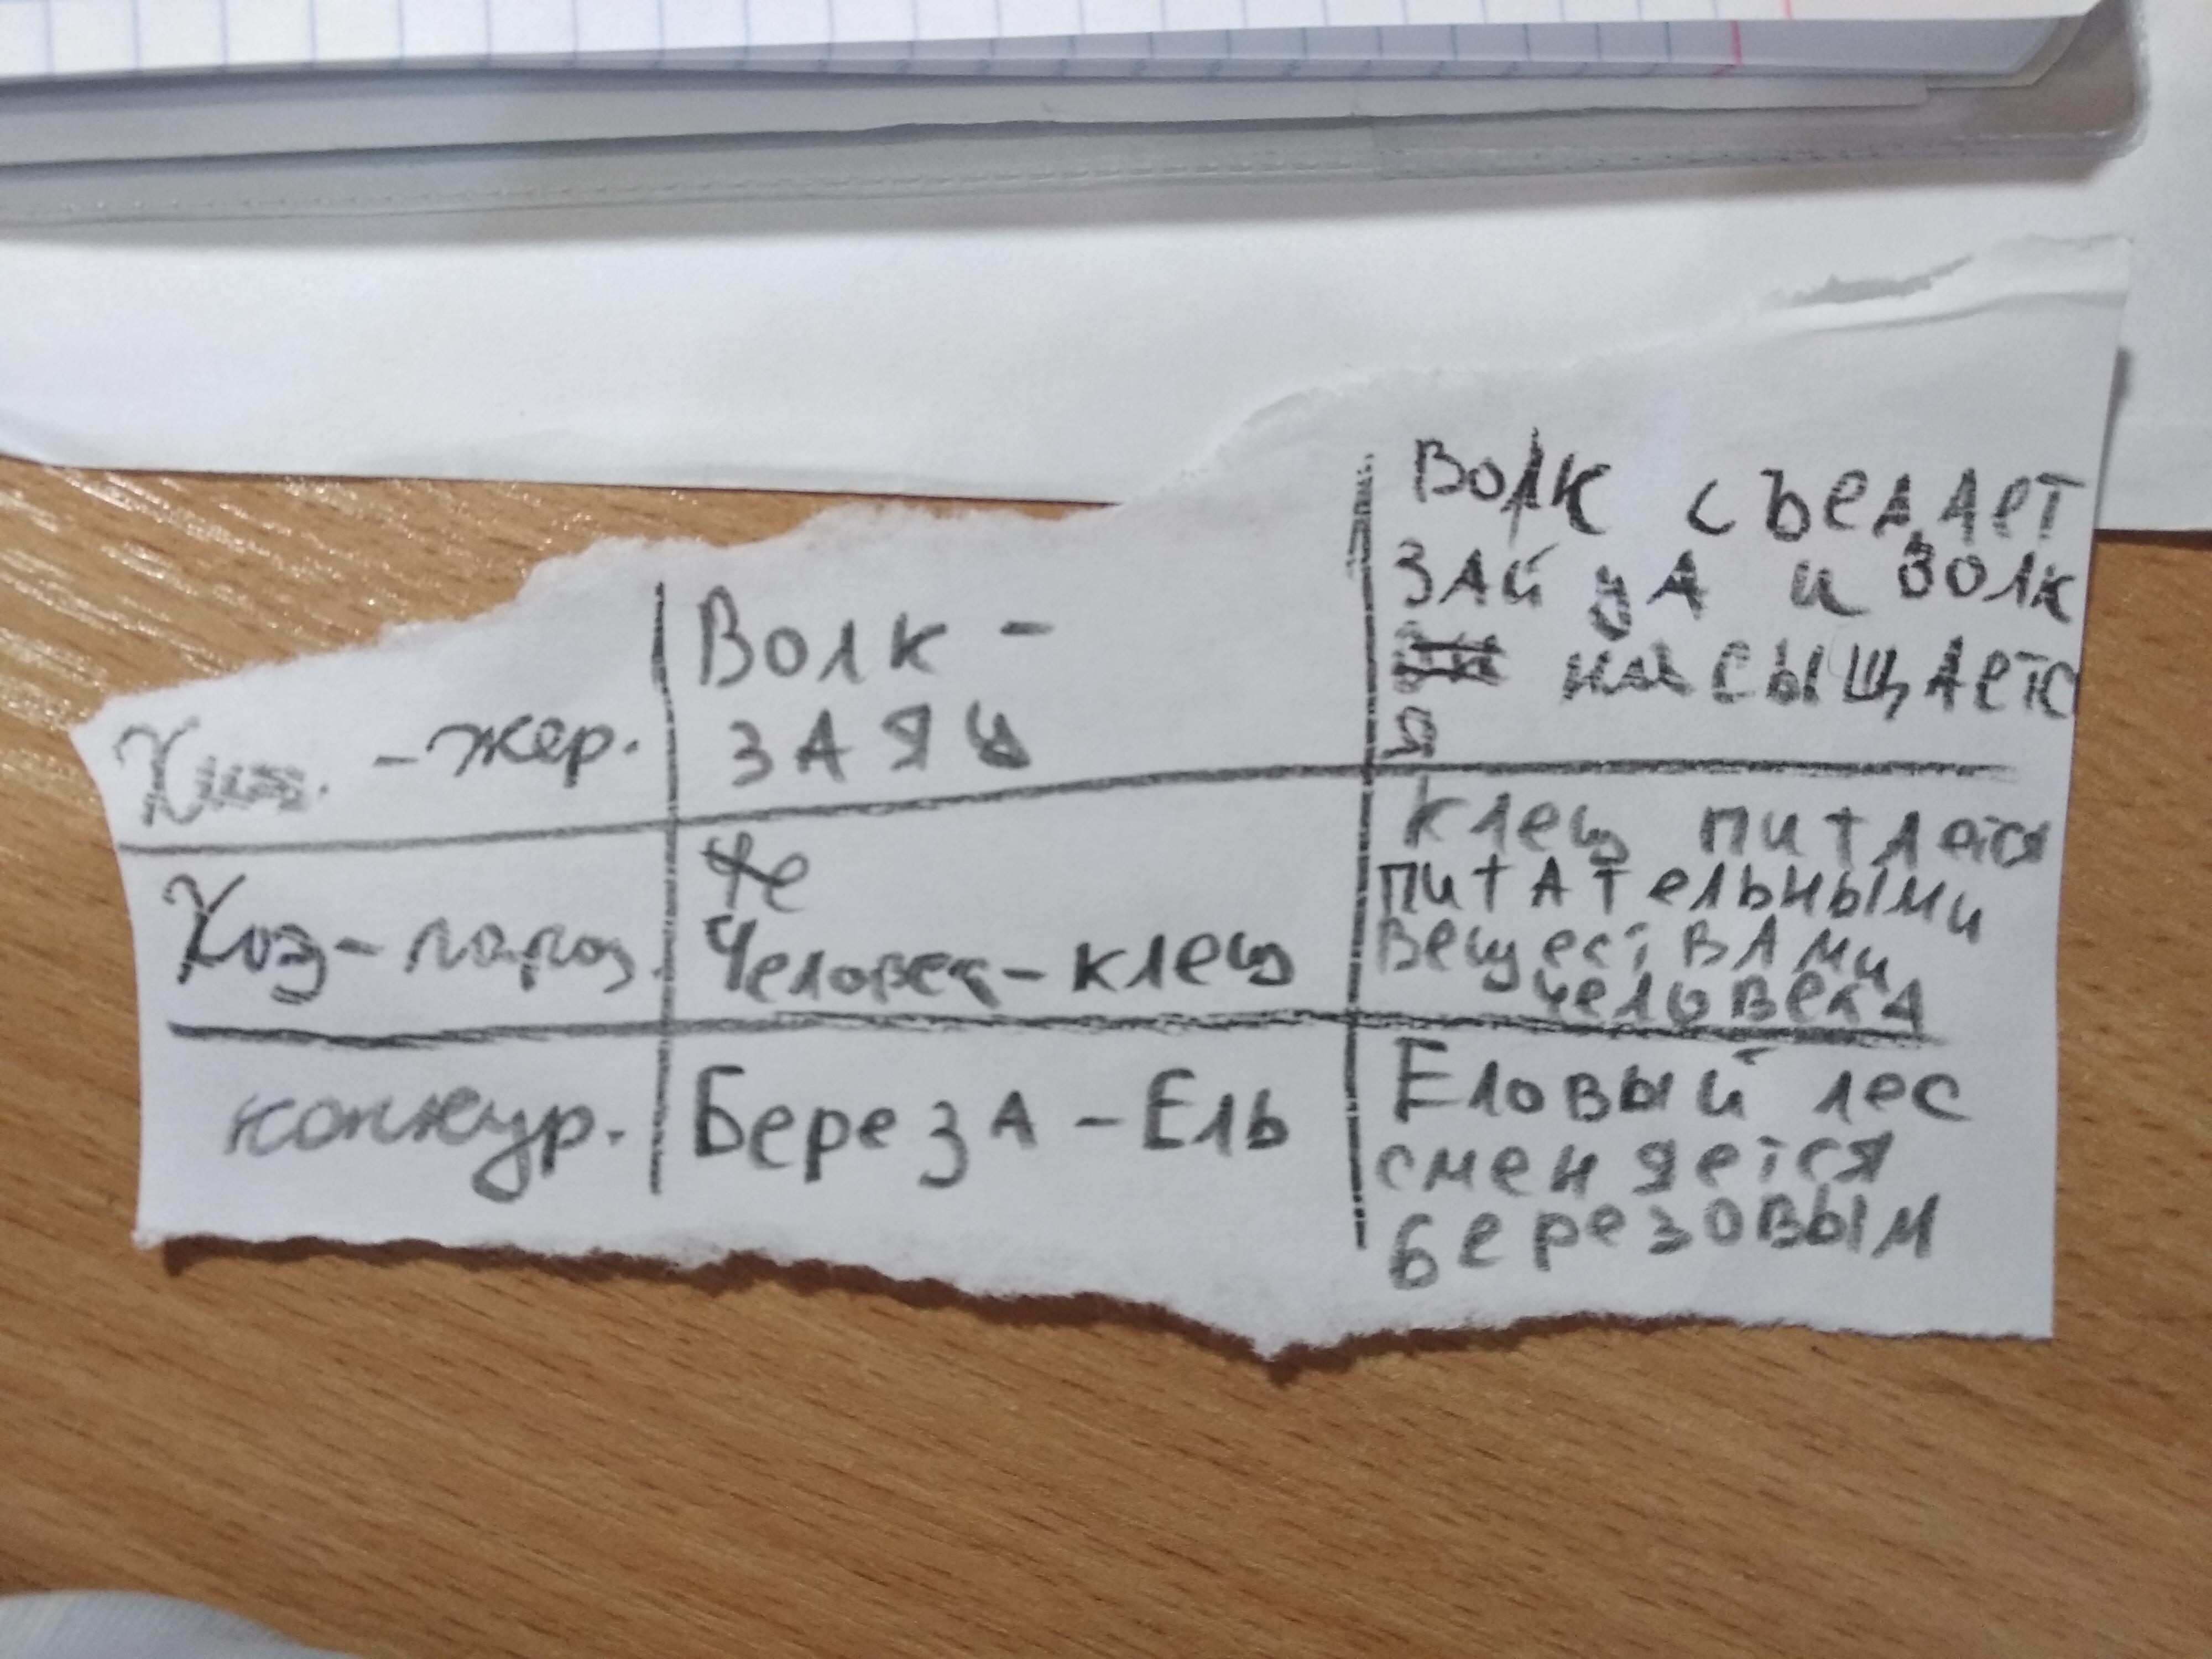 Хищ. - жер.
Волк -
заяц
Волк съедает
зайца и волк
насыщаетс
я
Хоз - параз.
Че
Человек - клещ
клещ питается
питательными
веществами
человека
конкур.
Береза - Ель
Еловый лес
сменяется
березовым